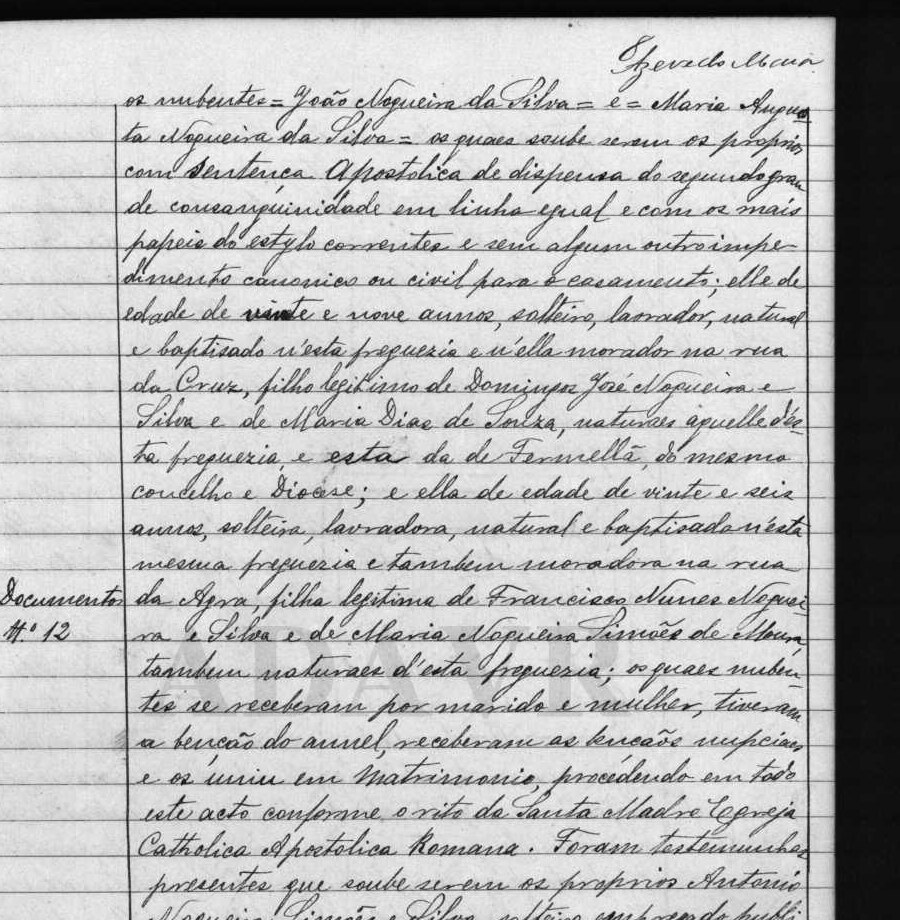 Azevedo Maia
os nubentes = João Nogueira da Silva = e = Maria Augus
ta Nogueira da Silva = os quaes soube serem os proprios
com sentença Apostolica de dispensa do segundo grau
de consanguinidade em linha egual e com os mais
papeis do estylo correntes e sem algum outro impe-
dimento canonico ou civil para o casamento; elle de
edade de vinte e nove annos, solteiro, lavrador, natural
e baptisado n'esta freguezia e n'ella morador na rua
da Cruz, filho legitimo de Domingos José Nogueira e
Silva e de Maria Dias de Souza, naturaes aquelle d'es-
ta freguezia, e esta da de Fermellã, do mesmo
concelho e Diocese; e ella de edade de vinte e seis
annos, solteira, lavradora, natural e baptisada n'esta
mesma freguezia e tambem moradora na rua
Documentos
da Agra, filha legitima de Francisco Nunes Noguei-
N.º 12
ra e Silva e de Maria Nogueira Simões de Moura,
tambem naturaes d'esta freguezia; os quaes nuben
tes se receberam por marido e mulher, tiveram
a benção do annel, receberam as bençãos nupciaes
e os uniu em Matrimonio, procedendo em todo
este acto conforme o rito da Santa Madre Egreja
Catholica Apostolica Romana. Foram testemunhas
presentes que soube serem os proprios Antonio
Nogueira Simões e Silva, solteiro, empregado publi
ADAVR